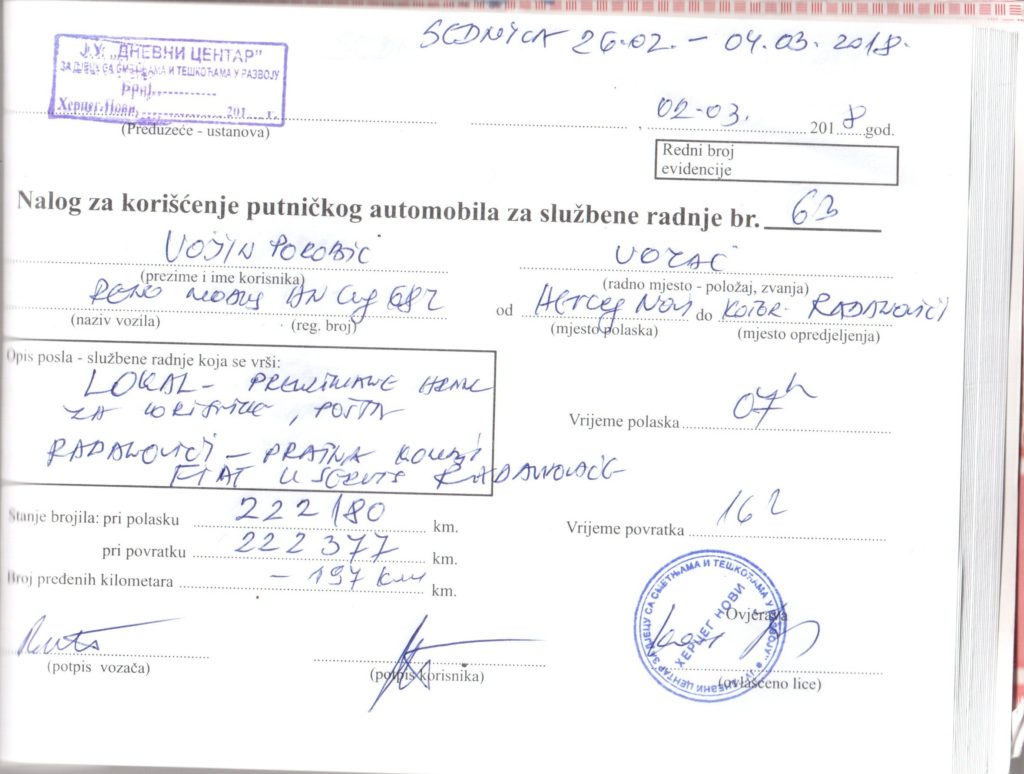 SEDNICA 26.02. - 04.03. 2018.
Ј.У. „ДНЕВНИ ЦЕНТАР"
ЗА ДЈЕЦУ СА СМЕТЊАМА И ТЕШКОЋАМА У РАЗВОЈУ
Херцег-Нови, 201 г.
(Preduzeće - ustanova)
02-03. 2018 god.
Redni broj
evidencije
Nalog za korišćenje putničkog automobila za službene radnje br. 63
VOJIN POROBIC
VOZAČ
(prezime i ime korisnika)
(radno mjesto - položaj, zvanja)
RENO HN
od HERCEG NOVI do KOTOR- RADANOVIĆI
(naziv vozila) (reg. broj)
(mjesto polaska) (mjesto opredjeljenja)
Opis posla - službene radnje koja se vrši:
LOKAL - PREUZIMANJE HRANE
ZA KORISNIKE, POŠTA
RADANOVIĆI - PRATNJA KOMBI
FIAT U SERVIS RADANOVIĆE
Vrijeme polaska 07h
Stanje brojila: pri polasku 222180 km.
Vrijeme povratka 16
pri povratku 222377 km.
Broj pređenih kilometara - 197 km km.
Ovjerava
(potpis vozača)
(potpis korisnika)
(ovlašćeno lice)
ЈУ ДНЕВНИ ЦЕНТАР ЗА ДЈЕЦУ СА СМЕТЊАМА И ТЕШКОЋАМА У РАЗВОЈУ
ХЕРЦЕГ НОВИ